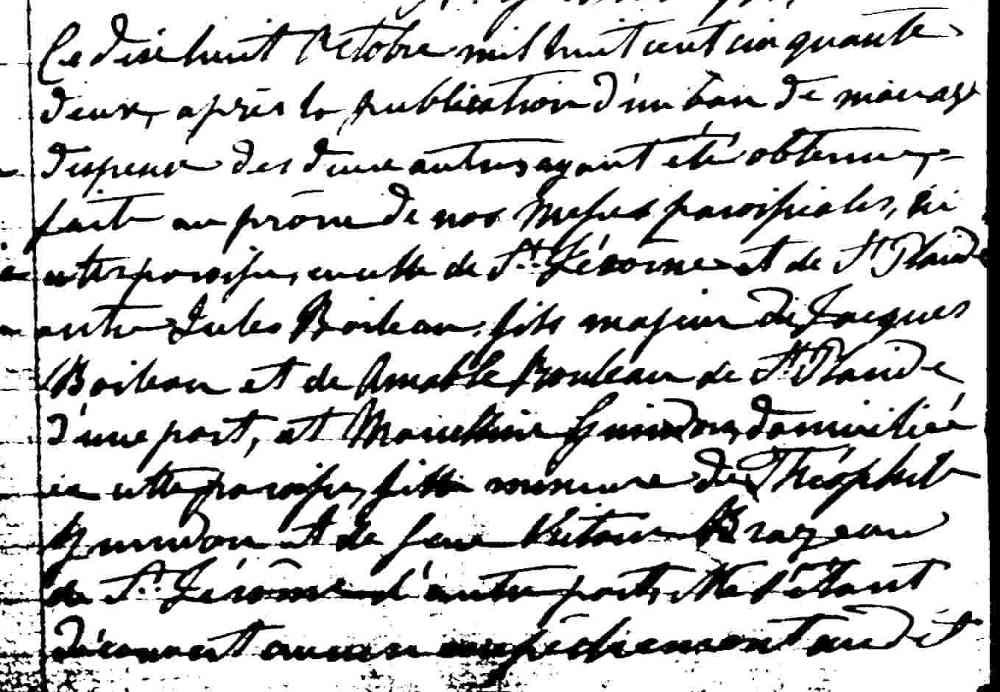 Ce dix huit Octobre mil huit cent cinquante
deux, après la publication d'un ban de mariage
dispense des deux autres ayant été obtenue,
faite au prône de nos Messes paroissiales, en
cette paroisse, en celle de St. Jérome et de St Placide
entre Jules Boileau, fils majeur de Jacques
Boileau et de Amable Rouleau de St Placide
d'une part, et Marcelline Guindon, domiciliée
en cette paroisse, fille mineure de Théophile
Guindon et de feue Victoire Brazeau
de St. Jérôme d'autre part, ne s'étant
découvert aucun empêchement audit